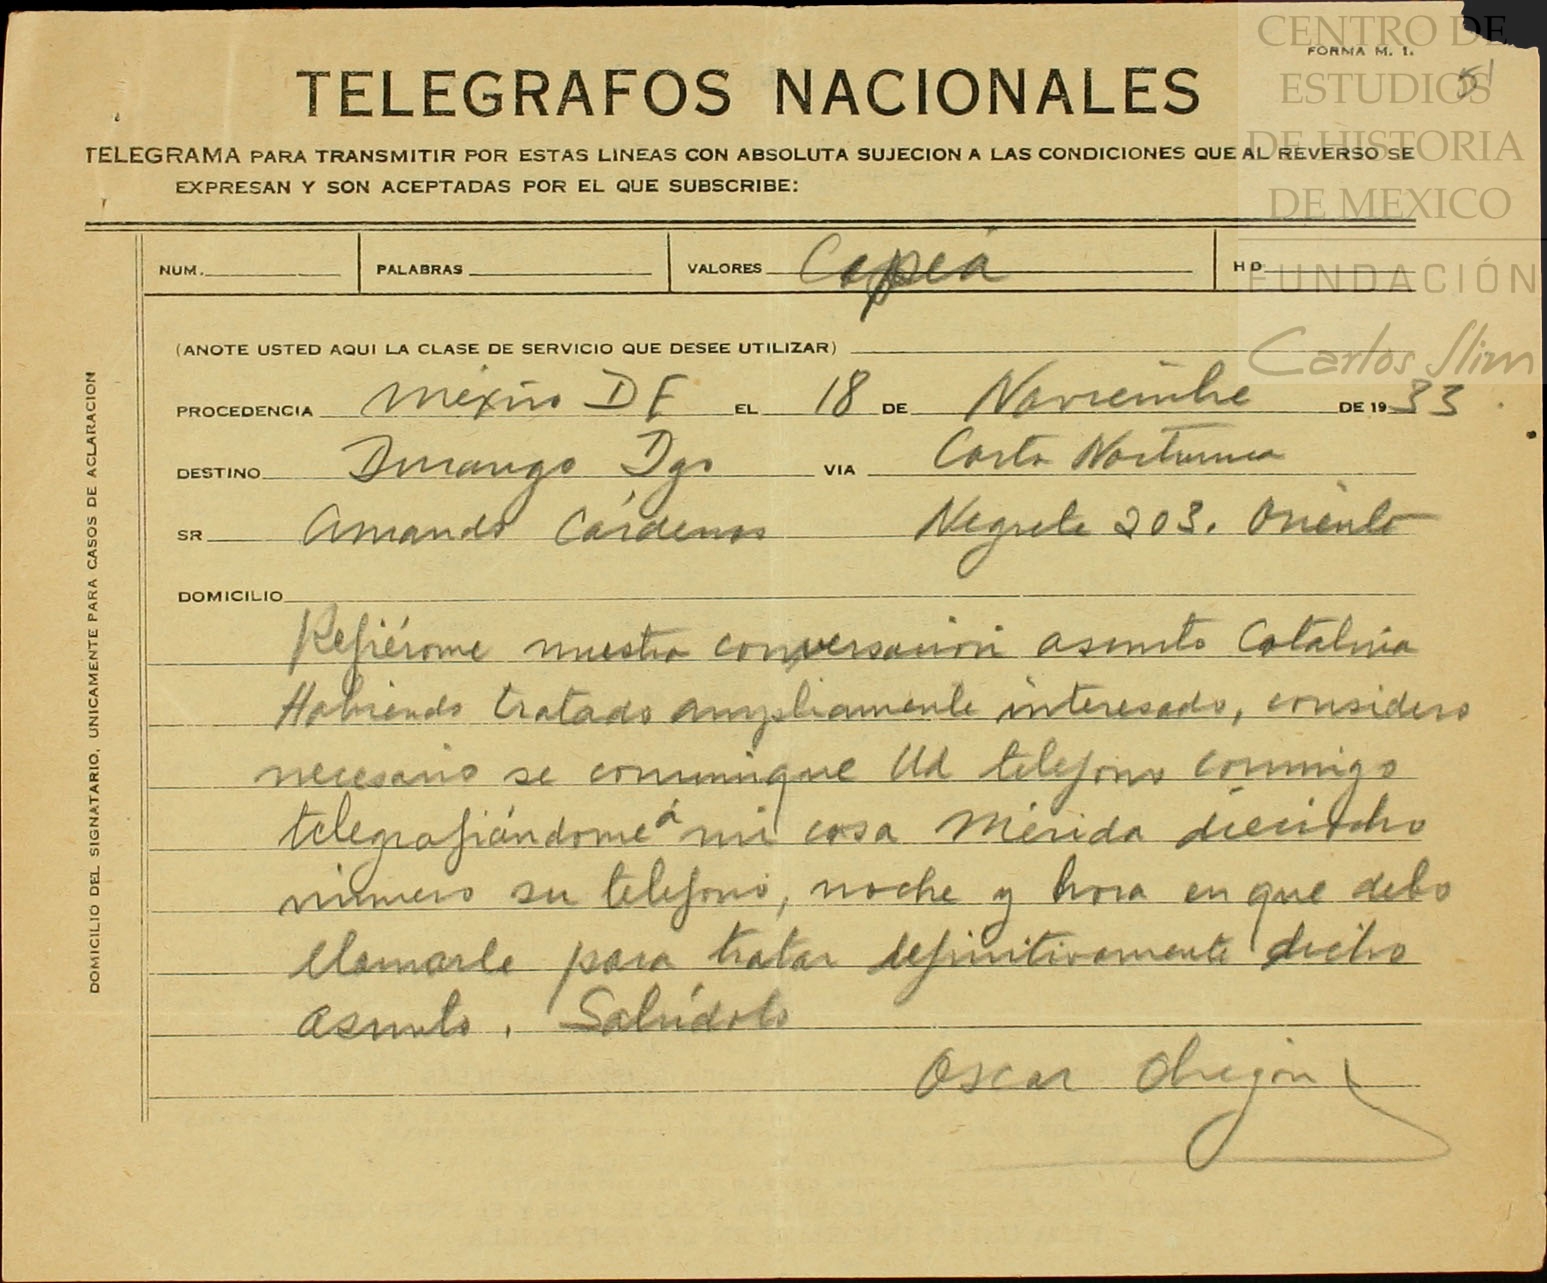 CENTRO DE
ESTUDIOS
DE HISTORIA
DE MEXICO
FUNDACIÓN
Carlos Slim
FORMA M. 1.
51
TELEGRAFOS NACIONALES
TELEGRAMA PARA TRANSMITIR POR ESTAS LINEAS CON ABSOLUTA SUJECION A LAS CONDICIONES QUE AL REVERSO SE
EXPRESAN Y SON ACEPTADAS POR EL QUE SUBSCRIBE:
NUM. PALABRAS VALORES Copia H D
(ANOTE USTED AQUI LA CLASE DE SERVICIO QUE DESEE UTILIZAR)
PROCEDENCIA México D F EL 18 DE Noviembre DE 1933
DESTINO Durango Dgo VIA Carta Nocturna
SR Amando Cárdenas Negrete 203. Oriente
DOMICILIO
Refiérome nuestra conversación asunto Catalina
Habiendo tratado ampliamente interesado, considero
necesario se comunique Ud telefono conmigo
telegrafiándome á mi casa Mérida dieciocho
número su telefono, noche y hora en que debo
llamarle para tratar definitivamente dicho
asunto. Salúdolo
Oscar Obregón
DOMICILIO DEL SIGNATARIO, UNICAMENTE PARA CASOS DE ACLARACION